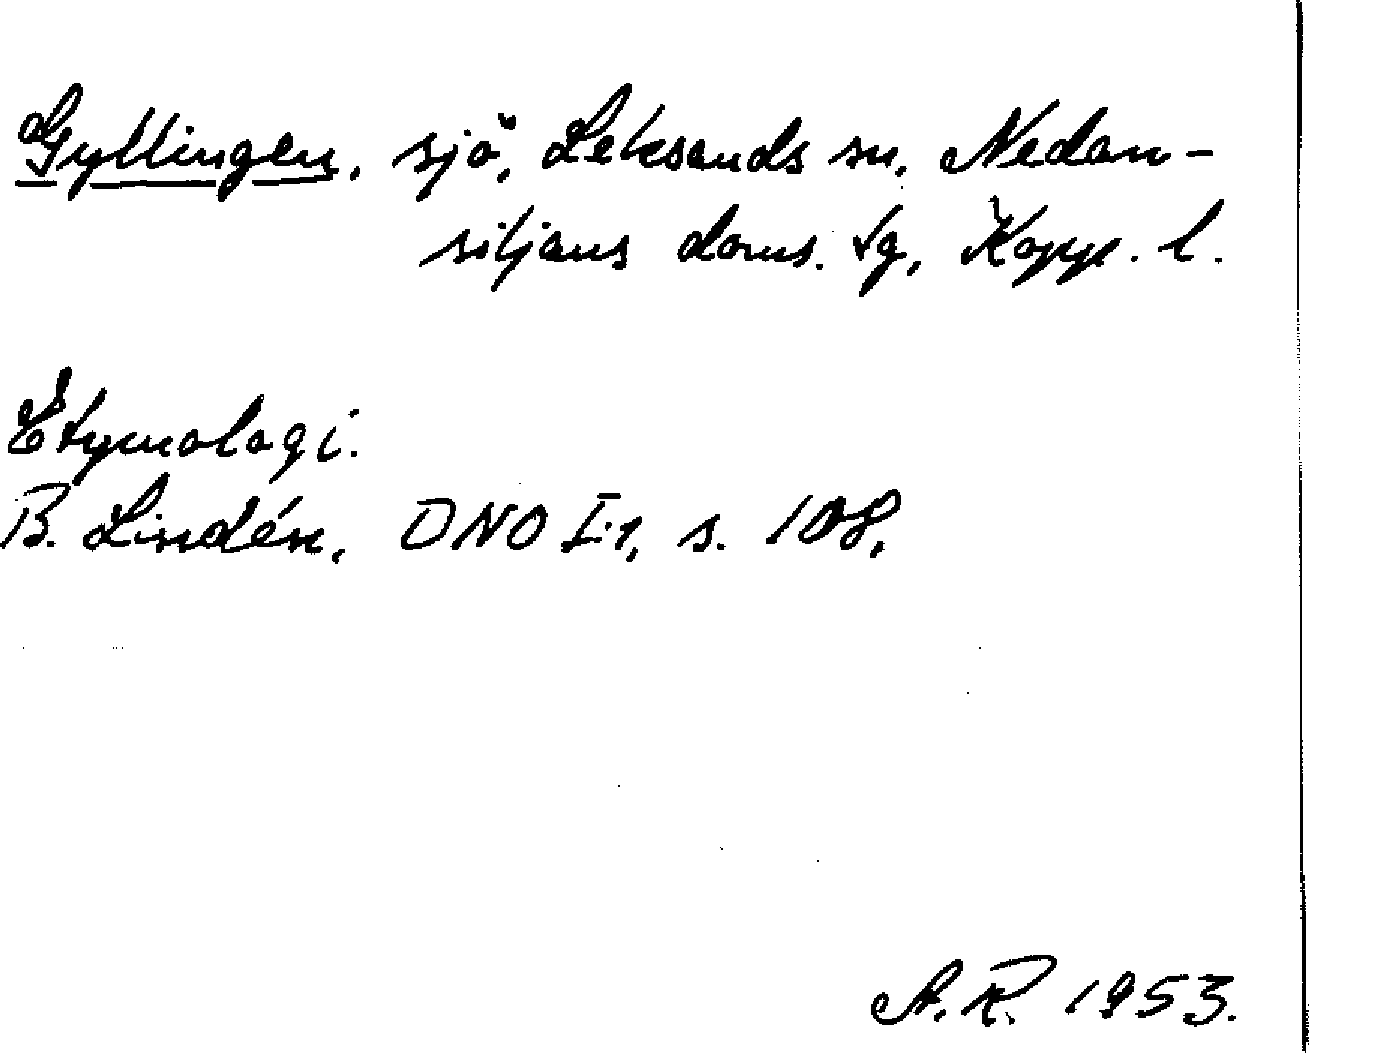 Gyllingen, sjö, Leksands sn, Nedan-
siljans doms. tg, Kopp. l.
Etymologi.
B. Lindén, DNO I:1, s. 108.
A.R. 1953.